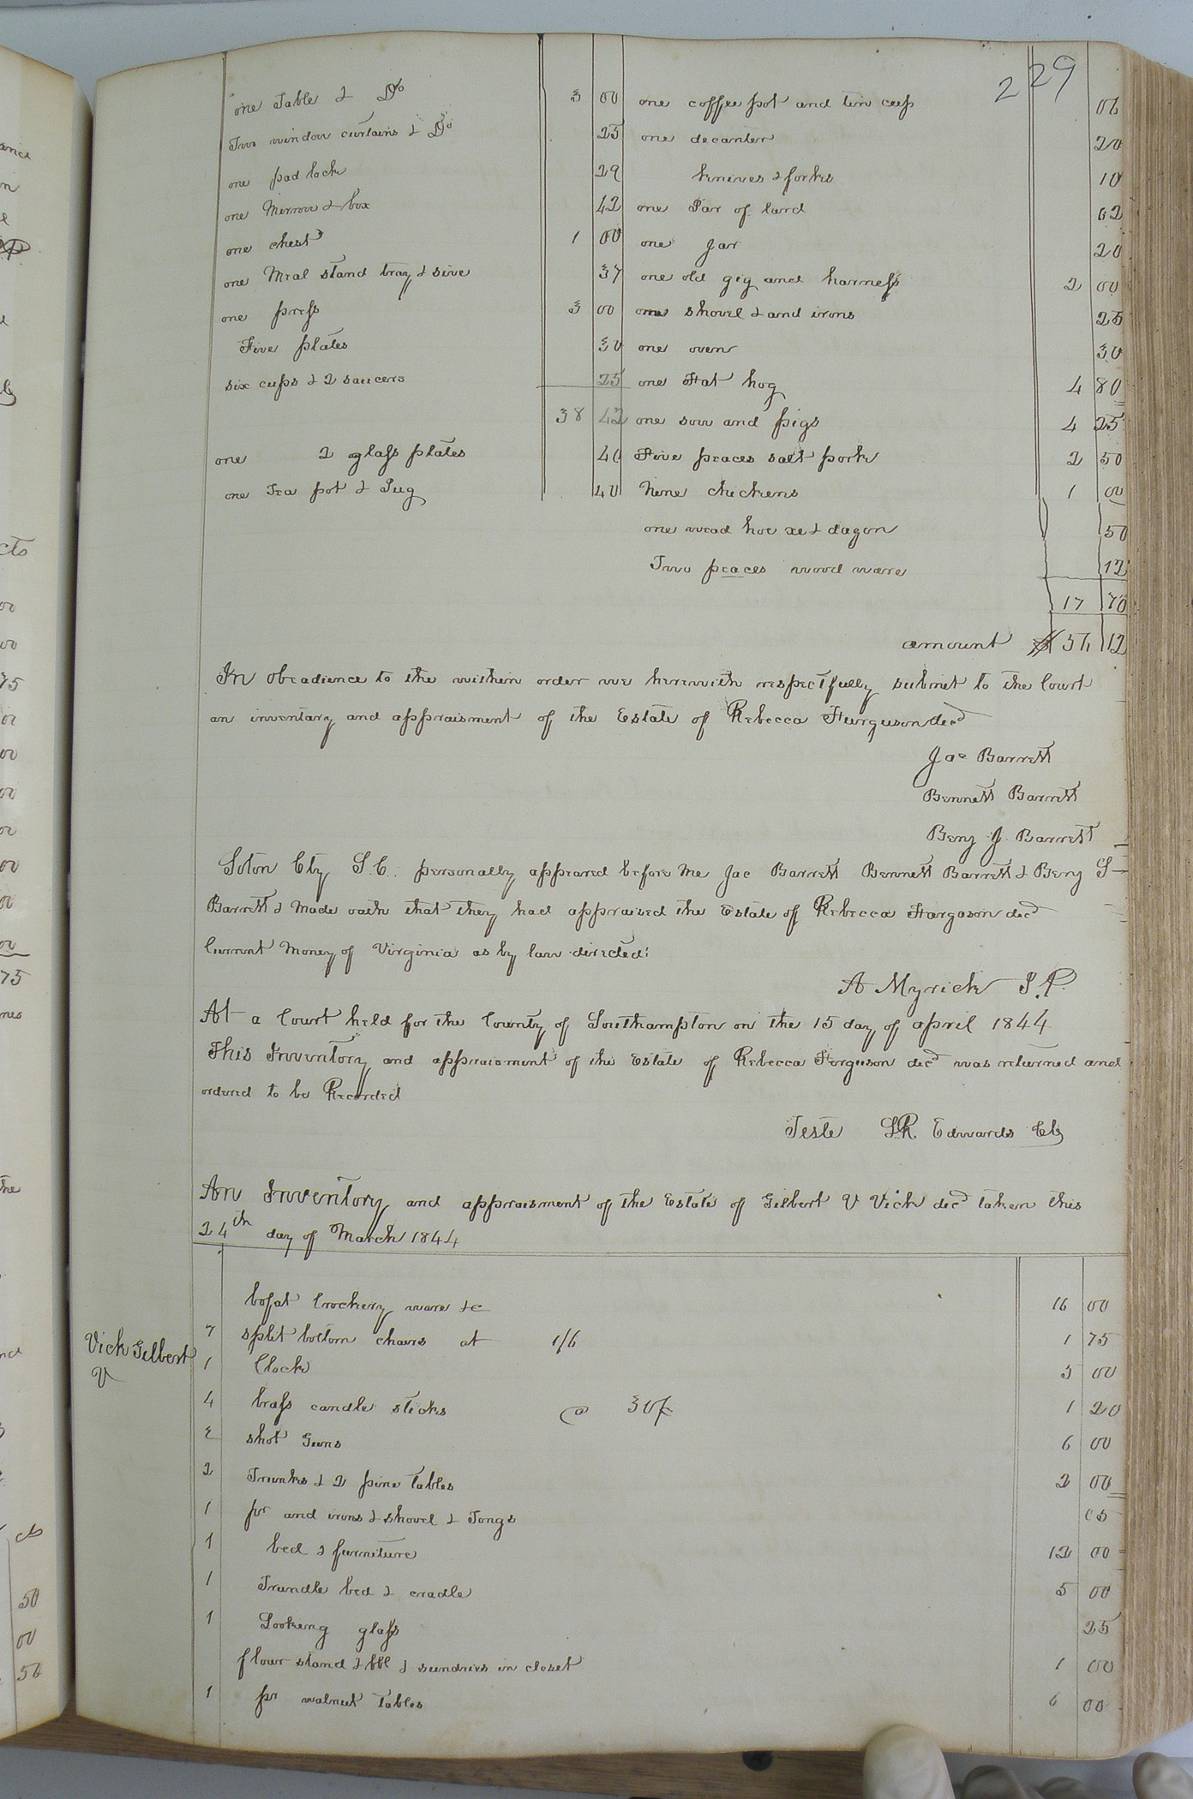 229
one Table & Do 3 00
Two window curtains & Do 25
one pad lock 29
one Mirrow & box 42
one chest 1 00
one Meal stand tray & sive 37
one press 3 00
Five plates 30
six cups & 2 saucers 25
38 42
one 2 glass plates 40
one Tea pot & Jug 40
one coffee pot and tin cup 06
one decanter 20
knives & forks 10
one Jar of lard 62
one Jar 20
one old gig and harness 2 00
one shovel & and irons 25
one oven 30
one Fat hog 4 80
one sow and pigs 4 25
Five peaces salt pork 2 50
Nine chickens 1 00
one wead hoe xe & dagon 50
Two peaces wood ware 12
17 70
amount $56 12
In obeadience to the within order we herewith respectfully submit to the Court
an inventary and appraisment of the Estate of Rebecca Furguson decd
Jac Barrett
Bennett Barrett
Benj J. Barrett
Soton Cty S.C. personally appeared before me Jac Barrett Bennett Barrett & Benj
Barrett & Made oath that they had appraised the Estate of Rebecca Fargason decd
Current Money of Virginia as by law directed:
A Myrick J.P.
At a Court held for the County of Southampton on the 15 day of april 1844
This Inventory and appraisment of the Estate of Rebecca Forguson decd was returned and
ordered to be Recorded
Teste LR. Edwards Clk
An Inventory and appraisment of the Estate of Gilbert V Vick decd taken this
24th day of March 1844
Vick Gilbert
V
bofat Crockery ware &c 16 00
7 split bottom chairs at 1/6 1 75
1 Clock 3 00
4 brass candle sticks @ 30¢ 1 20
2 shot Guns 6 00
2 Trunks & 2 pine tables 2 00
1 pr and irons & shovel & Tongs
1 bed & furniture 12 00
1 Trundle bed & cradle 5 00
1 Looking glass 25
flour stand & bbl & sundries in closet 1 00
1 pr walnut tables 6 00